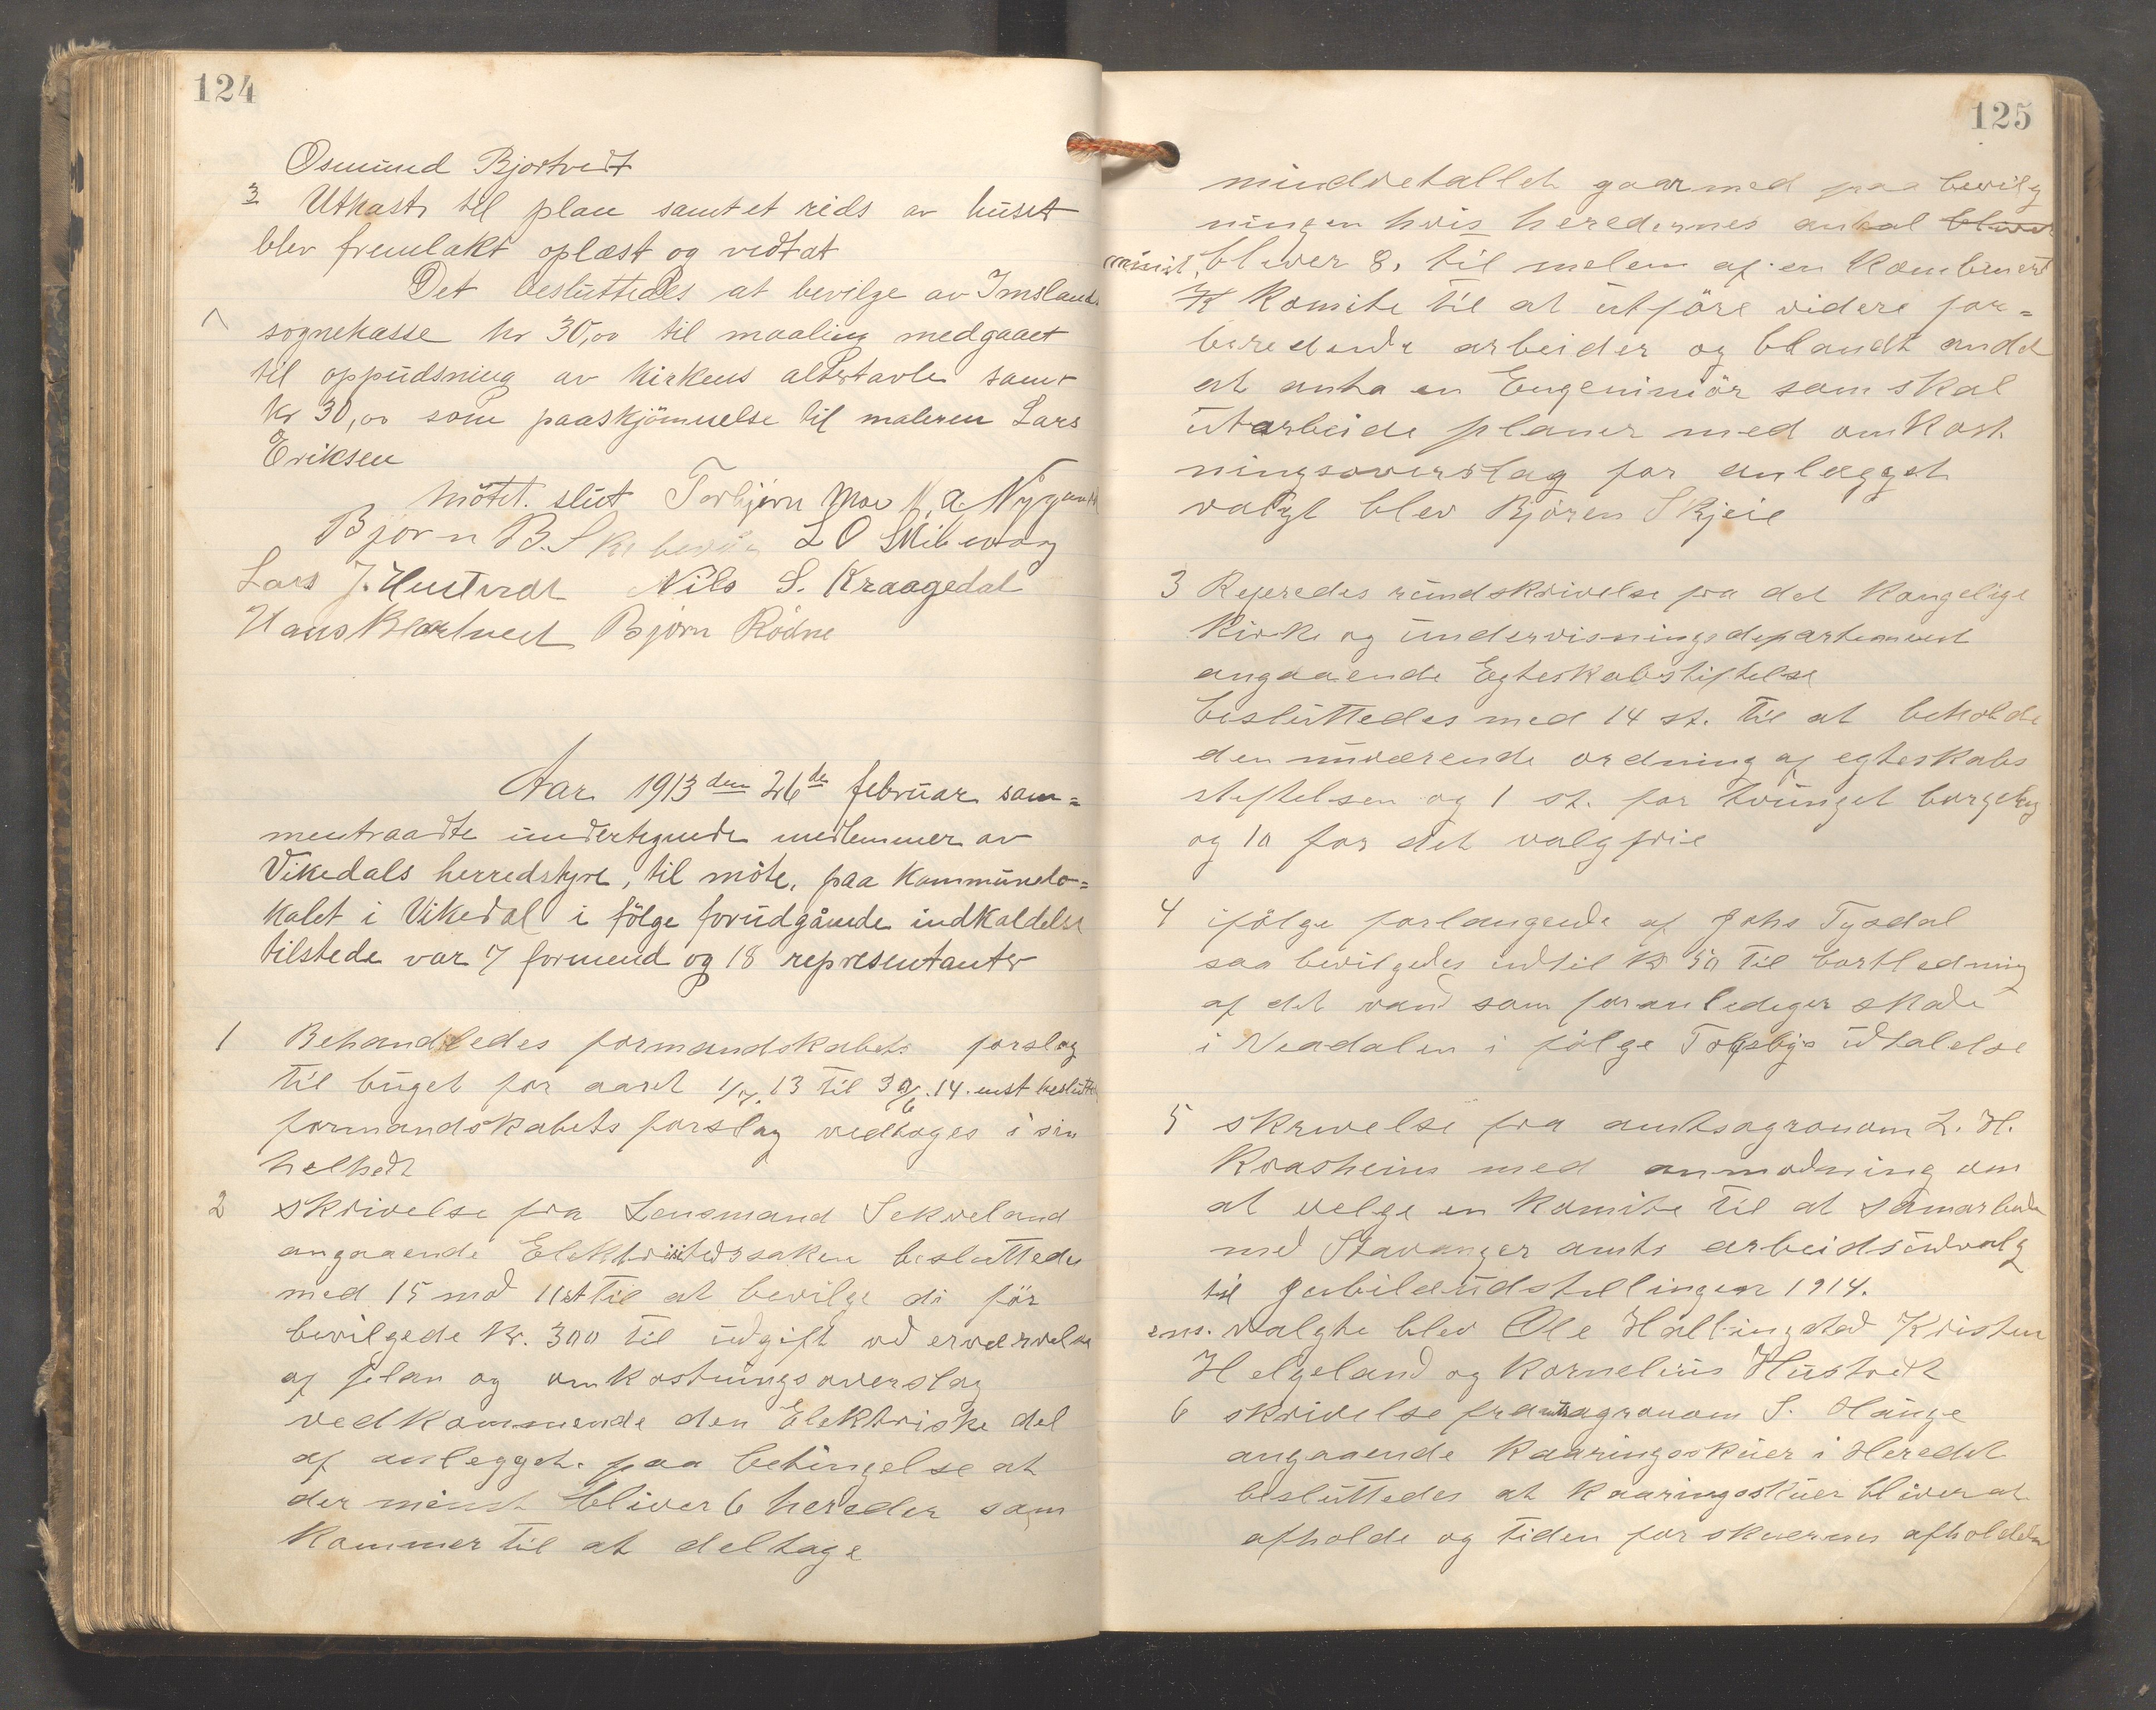 124
Osmund Bjortvedt
3 Utkast til plan samt et rids av huset
blev fremlakt oplæst og vedtat
Det besluttedes at bevilge av Imslands
sognekasse kr 30,00 til maaling medgaaet
til oppudsning av kirkens altertavle samt
kr 30,00 som paaskjönnelse til maleren Lars
Eriksen
mötet slut Torbjørn Moe N. A. Nygaard
Bjørn B. L O
Lars J. Hustvedt Nils S. Kraagedal
Hans Bjortvedt Bjørn Rödne
Aar 1913 den 26de februar sam=
mentraadte undertegnede medlemmer av
Vikedals herredstyre, til möte, paa Kommunelo=
kalet i Vikedal i fölge forudgående indkaldelse
tilstede var 7 formend og 18 representanter
1 Behandledes formandskabets forslag
til buget for aaret 1/7.13 til 30/6.14. enst besluttet
formandskabets forslag vedtoges i sin
helhedt
2 skrivelse fra Lensmand Sekveland
angaaende Elektrisitedssaken besluttedes
med 15 mod 11 st til at bevilge di för
bevilgede kr. 300 til udgift ved erværvelse
af plan og omkostningsoverslag
vedkommende den Elektriske del
af anlegget. paa betingelse at
der minst bliver 6 hereder som
kommer til at deltage
125
mindretallet gaar med paa bevilg
ningen hvis heredernes antal bliver
minst, bliver 8, til melem af en Kombinert
K Komite til at utföre videre for=
beredende arbeider og blandt andet
at anta en Engeniniör som skal
utarbeide planer med omkost
ningsoverslag for anlægget
valgt blev Björen Skjeie
3 Refseredes rundskrivelse fra det Kongelige
Kirke og undervisningsdepartement
angaaende Egteskabstiftelse
besluttedes med 14 st. til at beholde
den nuværende ordning af egteskabs
stiftelsen og 1 st. for tvunget borgerlig
og 10 for det valgfrie
4 ifölge forlangende af Johs Tysdal
saa bevilgedes indtil kr 50 til bortledning
af det vand som foranlediger skade
i Neadalen i fölge udtalelse
5 skrivelse fra amtsagronom L. H.
Krosheim med anmodning om
at velge en komite til at samarbeide
med Stavanger amts arbeidsudvalg
til Jubilæudstellingen 1914.
ens. valgte blev Ole Hallingstad Kristen
Helgeland og Kornelius Hustvedt
6 skrivelse fra amtsagronom S. Hauge
angaaende Kaaringsskuer i Heredet
besluttedes at Kaaringsskuer bliver at
afholde og tiden for skuernes afholdelse